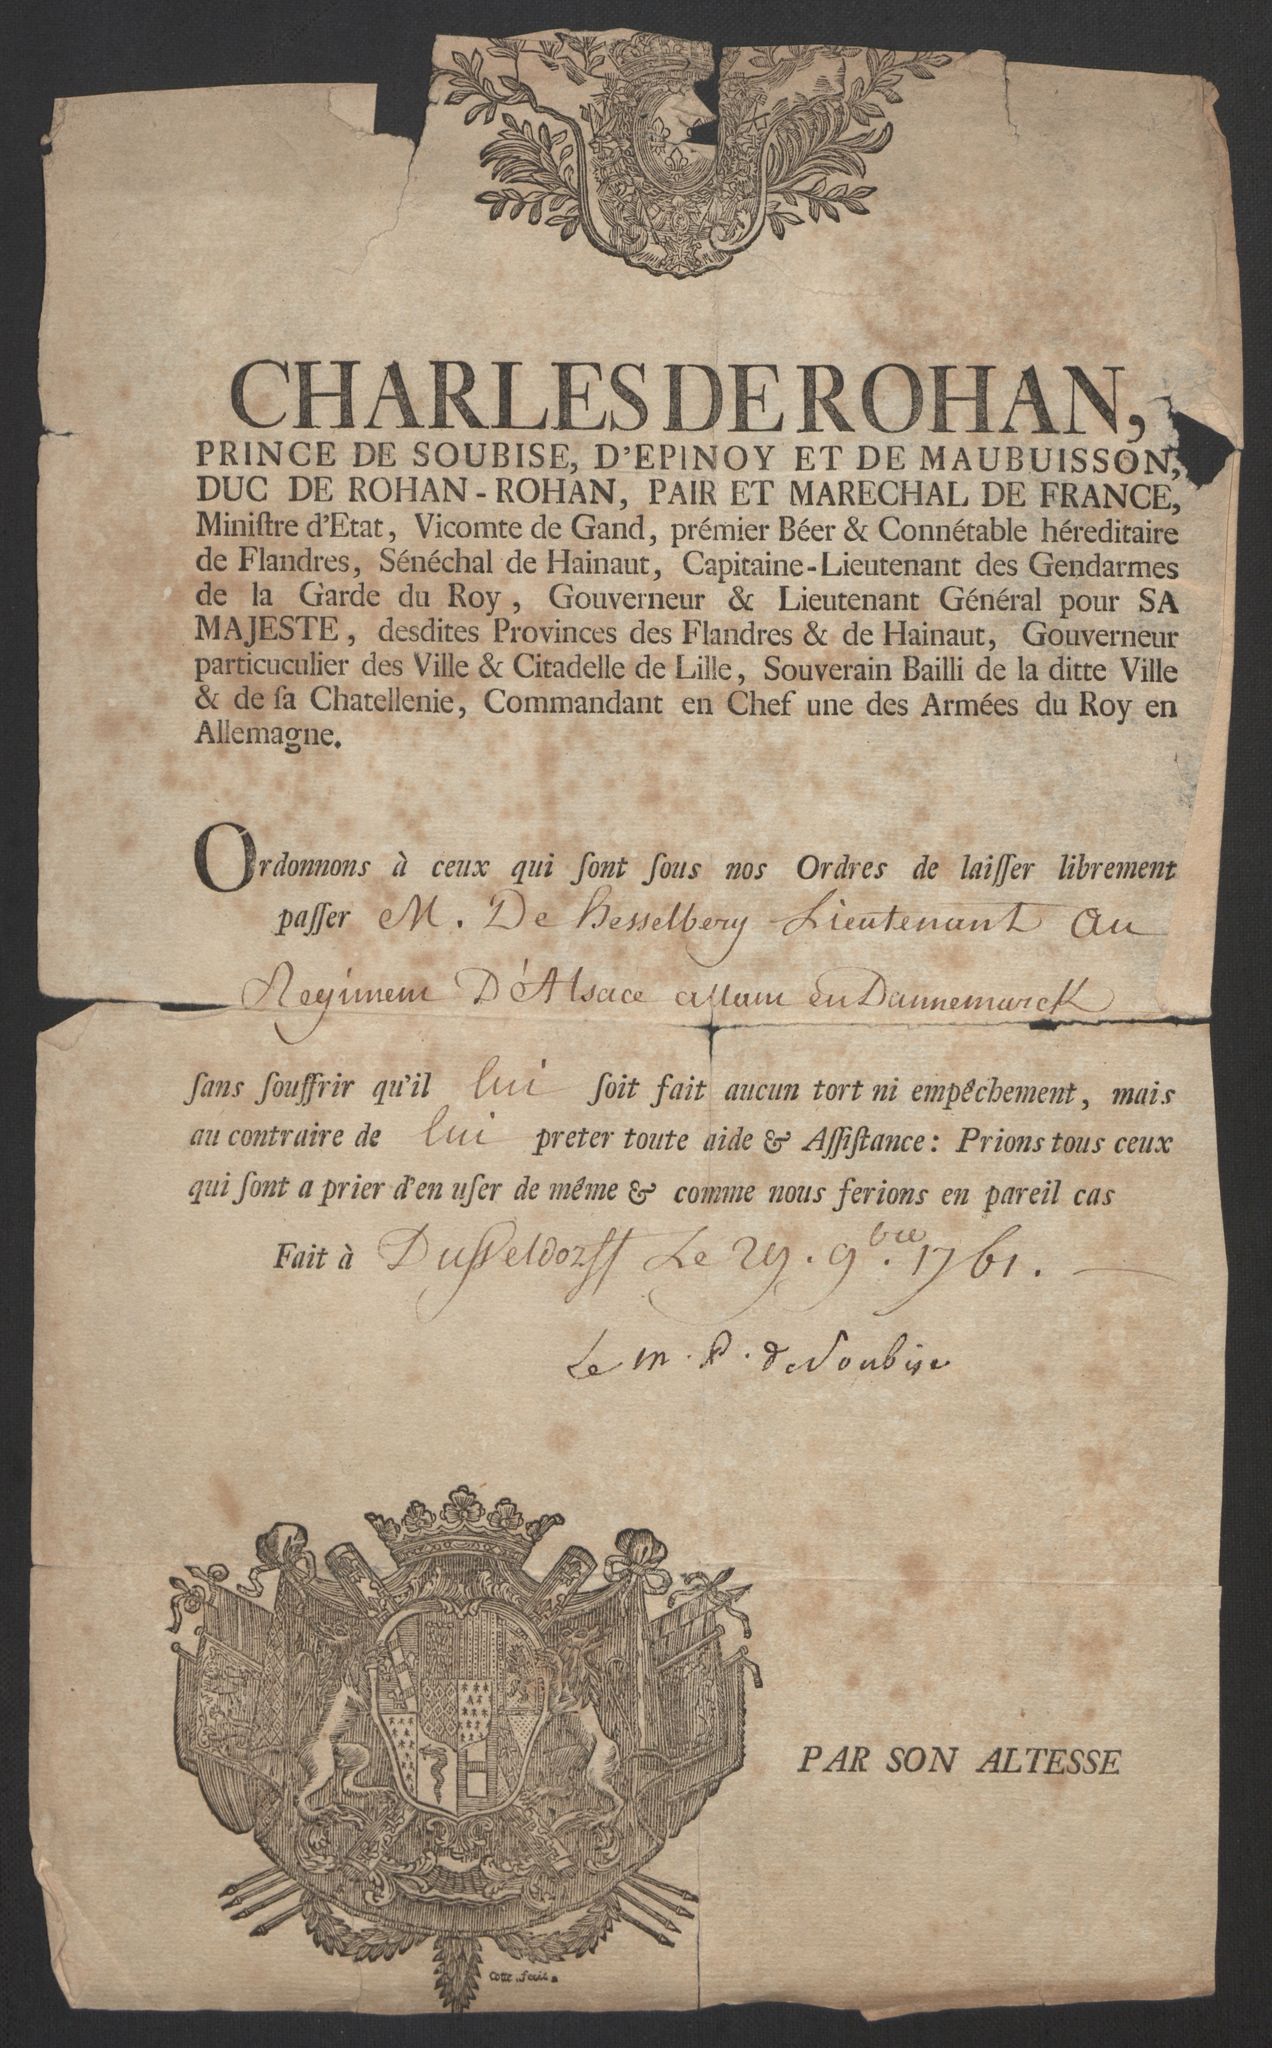 CHARLES DE ROHAN,
PRINCE DE SOUBISE, D'EPINOY ET DE MAUBUISSON,
DUC DE ROHAN-ROHAN, PAIR ET MARECHAL DE FRANCE,
Miniſtre d'Etat, Vicomte de Gand, prémier Béer & Connétable héreditaire
de Flandres, Sénéchal de Hainaut, Capitaine-Lieutenant des Gendarmes
de la Garde du Roy, Gouverneur & Lieutenant Général pour SA
MAJESTE, desdites Provinces des Flandres & de Hainaut, Gouverneur
particuculier des Ville & Citadelle de Lille, Souverain Bailli de la ditte Ville
& de ſa Chatellenie, Commandant en Chef une des Armées du Roy en
Allemagne.
Ordonnons à ceux qui ſont ſous nos Ordres de laiſſer librement
paſſer M. De hesselberg Lieutenant au
Regiment D'Alsace allant en Dannemarck
ſans ſouffrir qu'il lui ſoit fait aucun tort ni empêchement, mais
au contraire de lui preter toute aide & Aſſiſtance: Prions tous ceux
qui ſont a prier d'en uſer de même & comme nous ferions en pareil cas
Fait à Duſſeldorff Le 29. 9bre. 1761.
Le m. P. de Soubise
PAR SON ALTESSE